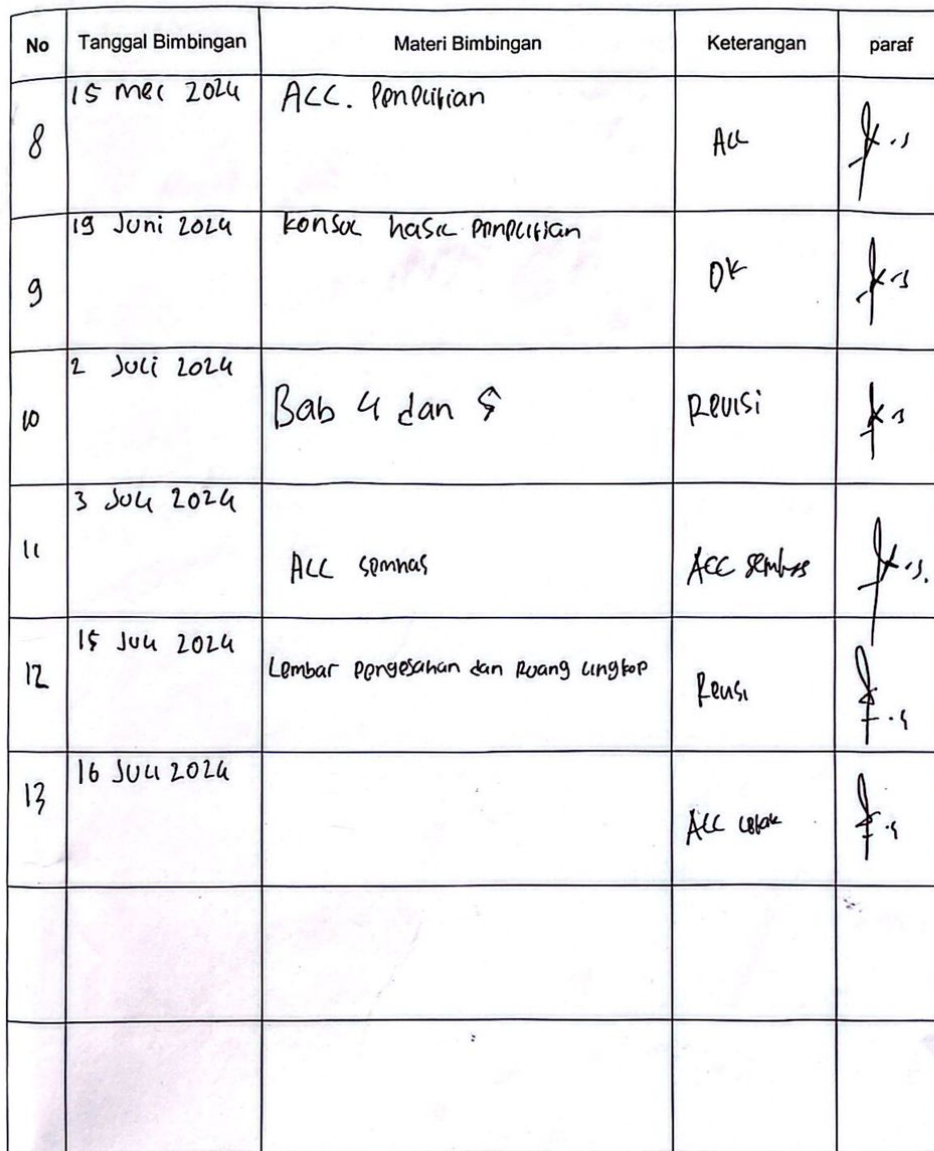 No Tanggal Bimbingan Materi Bimbingan Keterangan paraf
8 15 mei 2024 ACC. Penelitian Acc
9 19 Juni 2024 Konsul hasil penelitian OK
10 2 Juli 2024 Bab 4 dan 5 Revisi
11 3 Juli 2024 ACC semhas ACC semhas
12 15 Juli 2024 Lembar pengesahan dan Ruang lingkop Revisi
13 16 Juli 2024 ACC cetak